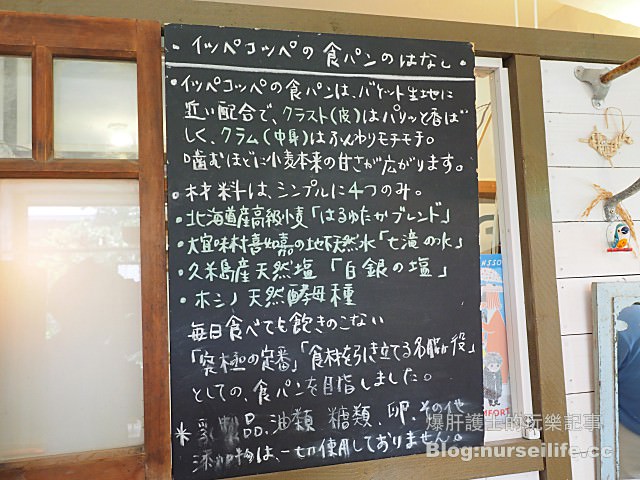 ・イッペコッペの食パンのはなし。
・イッペコッペの食パンは、バゲット生地に
近い配合で、クラスト(皮)はパリッと香ば
しく、クラム(中身)はふんわりモチモチ。
噛むほどに小麦本来の甘さが広がります。
・材料は、シンプルに4つのみ。
・北海道産高級小麦「はるゆたかブレンド」
・大宜味村喜如嘉の地下天然水「七滝の水」
・久米島産天然塩「白銀の塩」
・ホシノ天然酵母種
毎日食べても飽きのこない
「究極の定番」「食材を引き立てる名脇役」
としての、食パンを目指しました。
*乳製品、油類、糖類、卵、その他
添加物は、一切使用しておりません。
爆肝護士的玩樂記事
Blog:nurseilife.cc